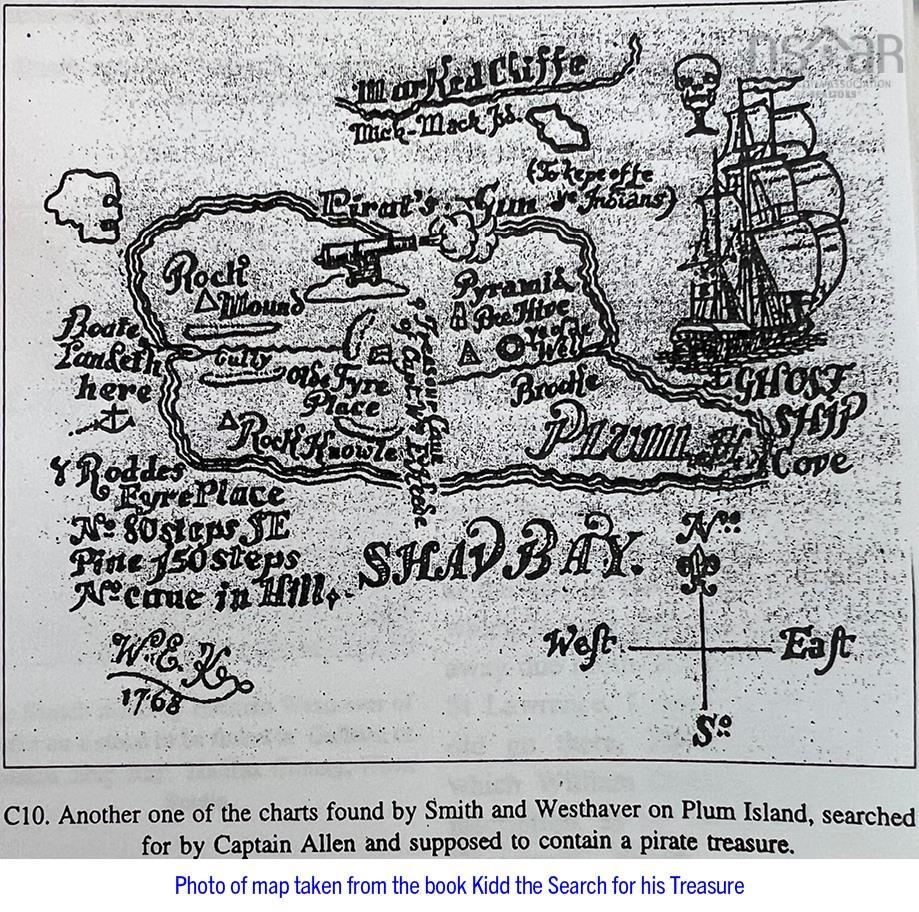 nsaar
ASSOCIATION
REALTORS®
Marked Cliffe
Mick-Mack Isd.
(To kepe offe
ye Indians)
Pirat's Gun
Rock
Mound
Pyramid
Bee Hive
Well
Boate
Landeth
here
Gully
Olde Fyre
Place
Brooke
Rock Knowle
PLUMM
GHOST
SHIP
Cove
4 Roddes
Fyre Place
No. 80 steps SE
Pine 150 steps
No. cave in Hill,
SHAD BAY.
No.
West
East
So.
W.E.K.
1768
C10. Another one of the charts found by Smith and Westhaver on Plum Island, searched
for by Captain Allen and supposed to contain a pirate treasure.
Photo of map taken from the book Kidd the Search for his Treasure